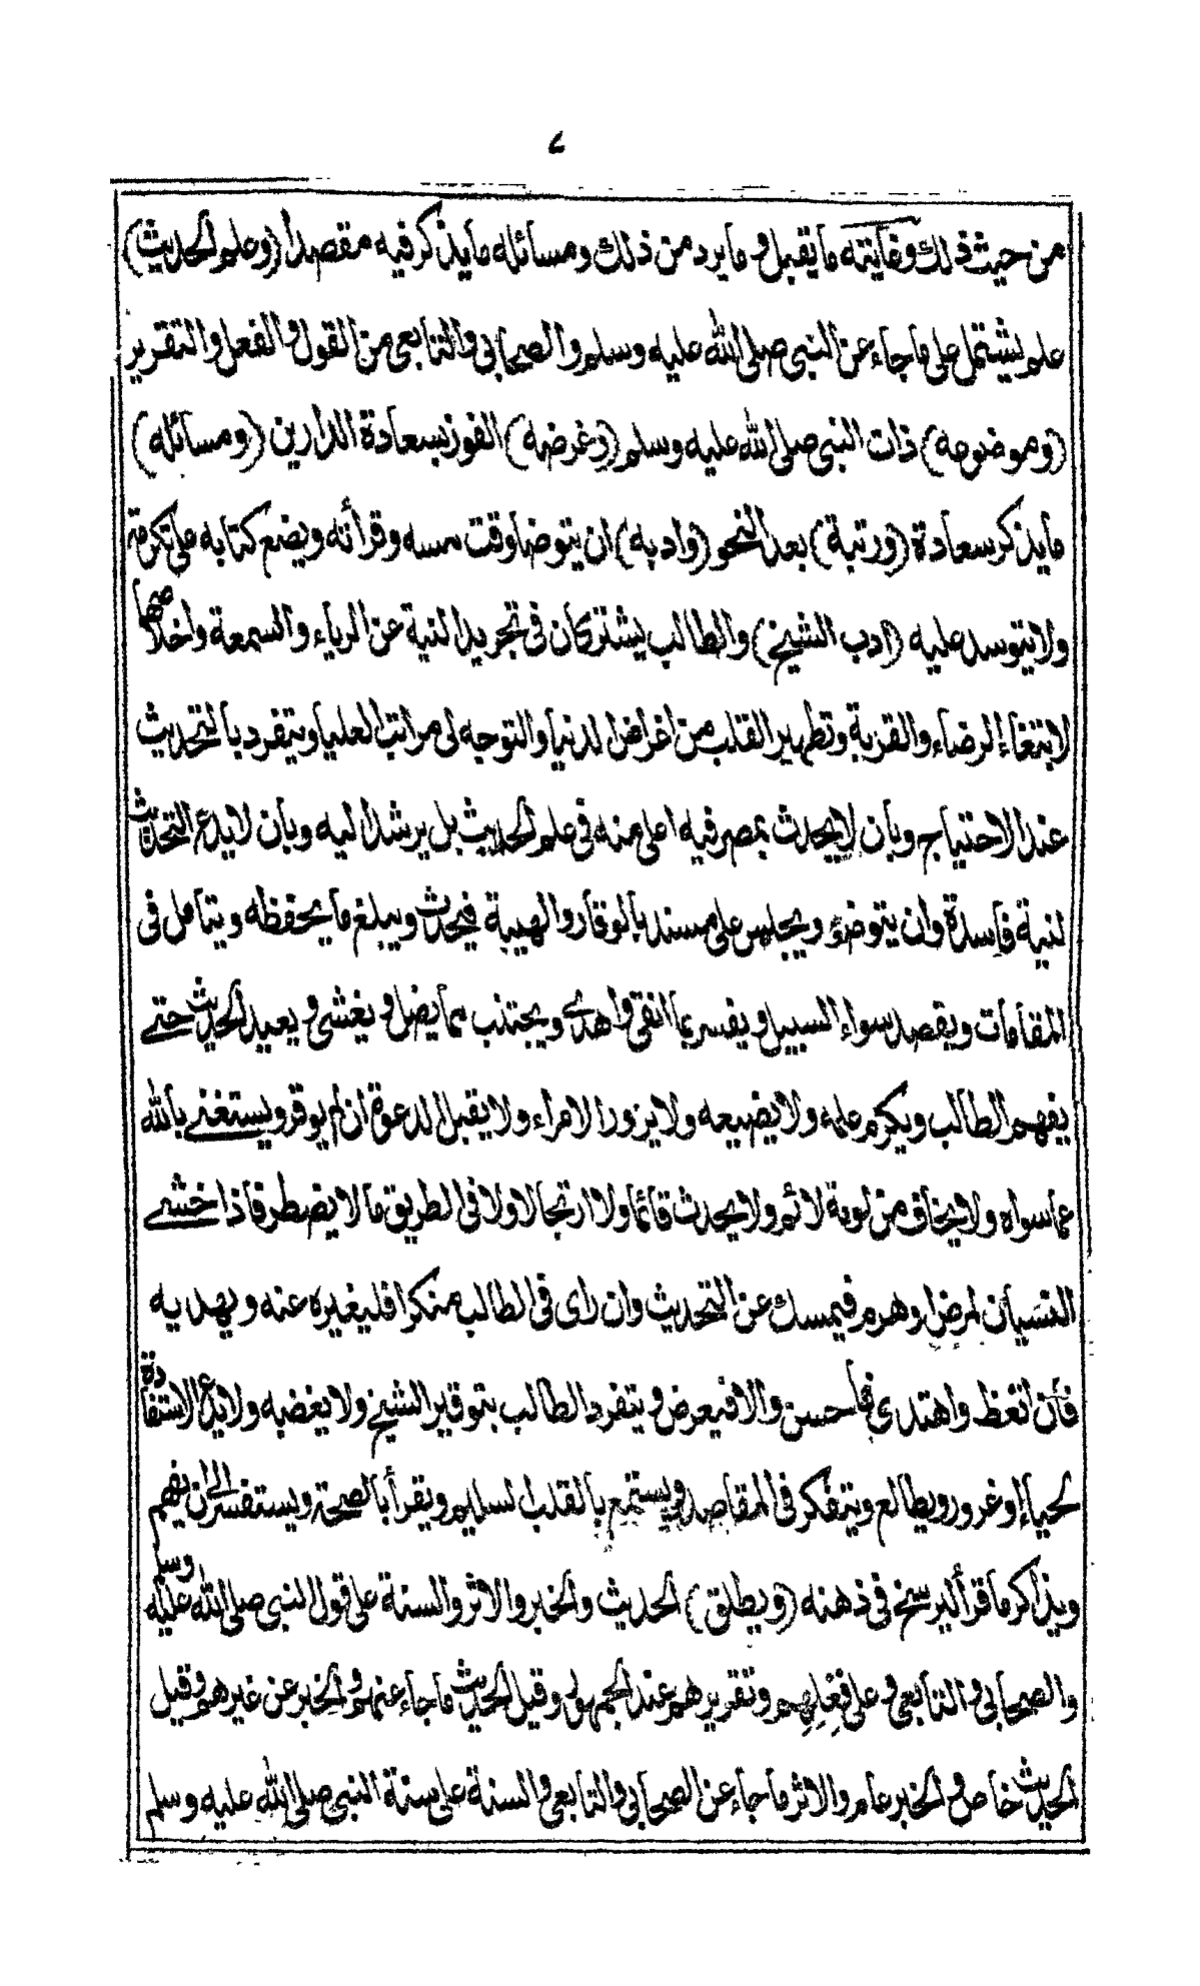 ٧
من حيث ذلك وغايته ما يقبل وما يرد من ذلك ومسائله ما يذكر فيه مقصدا (وعلم الحديث)
علم يشتمل على ما جاء عن النبي صلى الله عليه وسلم والصحابي والتابعي من القول والفعل والتقرير
(وموضوعه) ذات النبي صلى الله عليه وسلم (وغرضه) الفوز بسعادة الدارين (ومسائله)
ما يذكر سعادة (ورتبة) بعد النحو (وادبه) ان يتوضا وقت مسه وقرأته ويضع كتابه على تكرمة
ولا يتوسد عليه (ادب الشيخ) والطالب يشتركان في تجريد النية عن الرياء والسمعة واخلاصها
لابتغاء الرضاء والقربة وتطهير القلب من اغراض الدنيا والتوجه لى مراتب العليا ويتفرد بالتحديث
عند الاحتياج وبان لا يحدث بمصر فيه اعلى منه في علم الحديث بل يرشد اليه وبان لا يدع التحديث
لنية فاسدة وان يتوضؤ ويجلس على مسند بالوقار والهيبة فيحدث ويبلغ ما يحفظه ويتامل في
المقامات ويقصد سواء السبيل ويفسر بما انقى واهدى ويجتنب مما يضل ويغشى ويعيد الحديث حتے
يفهم الطالب ويكرم علمه ولا يضيعه ولا يزور الامراء ولا يقبل الدعوة ان لم يوقر ويستغنے بالله
عما سواه ولا يخاف من لومة لائم ولا يحدث قائما ولا ارتجالا ولا في الطريق ما لا يضطر فاذا خشے
النسيان لمرض وهرم فيمسك عن التحديث وان راى في الطالب منكرا فليغيره عنه ويهديه
فان اتعظ واهتدى فبها حسن والا فيعرض ويتفرد الطالب بتوقير الشيخ ولا يغضبه ولا يدع الاستفادة
لحياء او غرور ويطالع ويتفكر في المقاصد ويستمع بالقلب السليم ويقرأ بالصحة ويستفسر الى ان يفهم
ويذاكر ما قرأ ليرسخ في ذهنه (ويطلق) الحديث والخبر والاثر والسنة على قول النبي صلى الله عليه وسلم
والصحابي والتابعي وعلى فعلهم وتقريرهم عند الجمهور وقيل الحديث ما جاء عنهم والخبر عن غيرهم وقيل
الحديث خاص والخبر عام والاثر ما جاء عن الصحابي والتابعي والسنة على سنة النبي صلى الله عليه وسلم